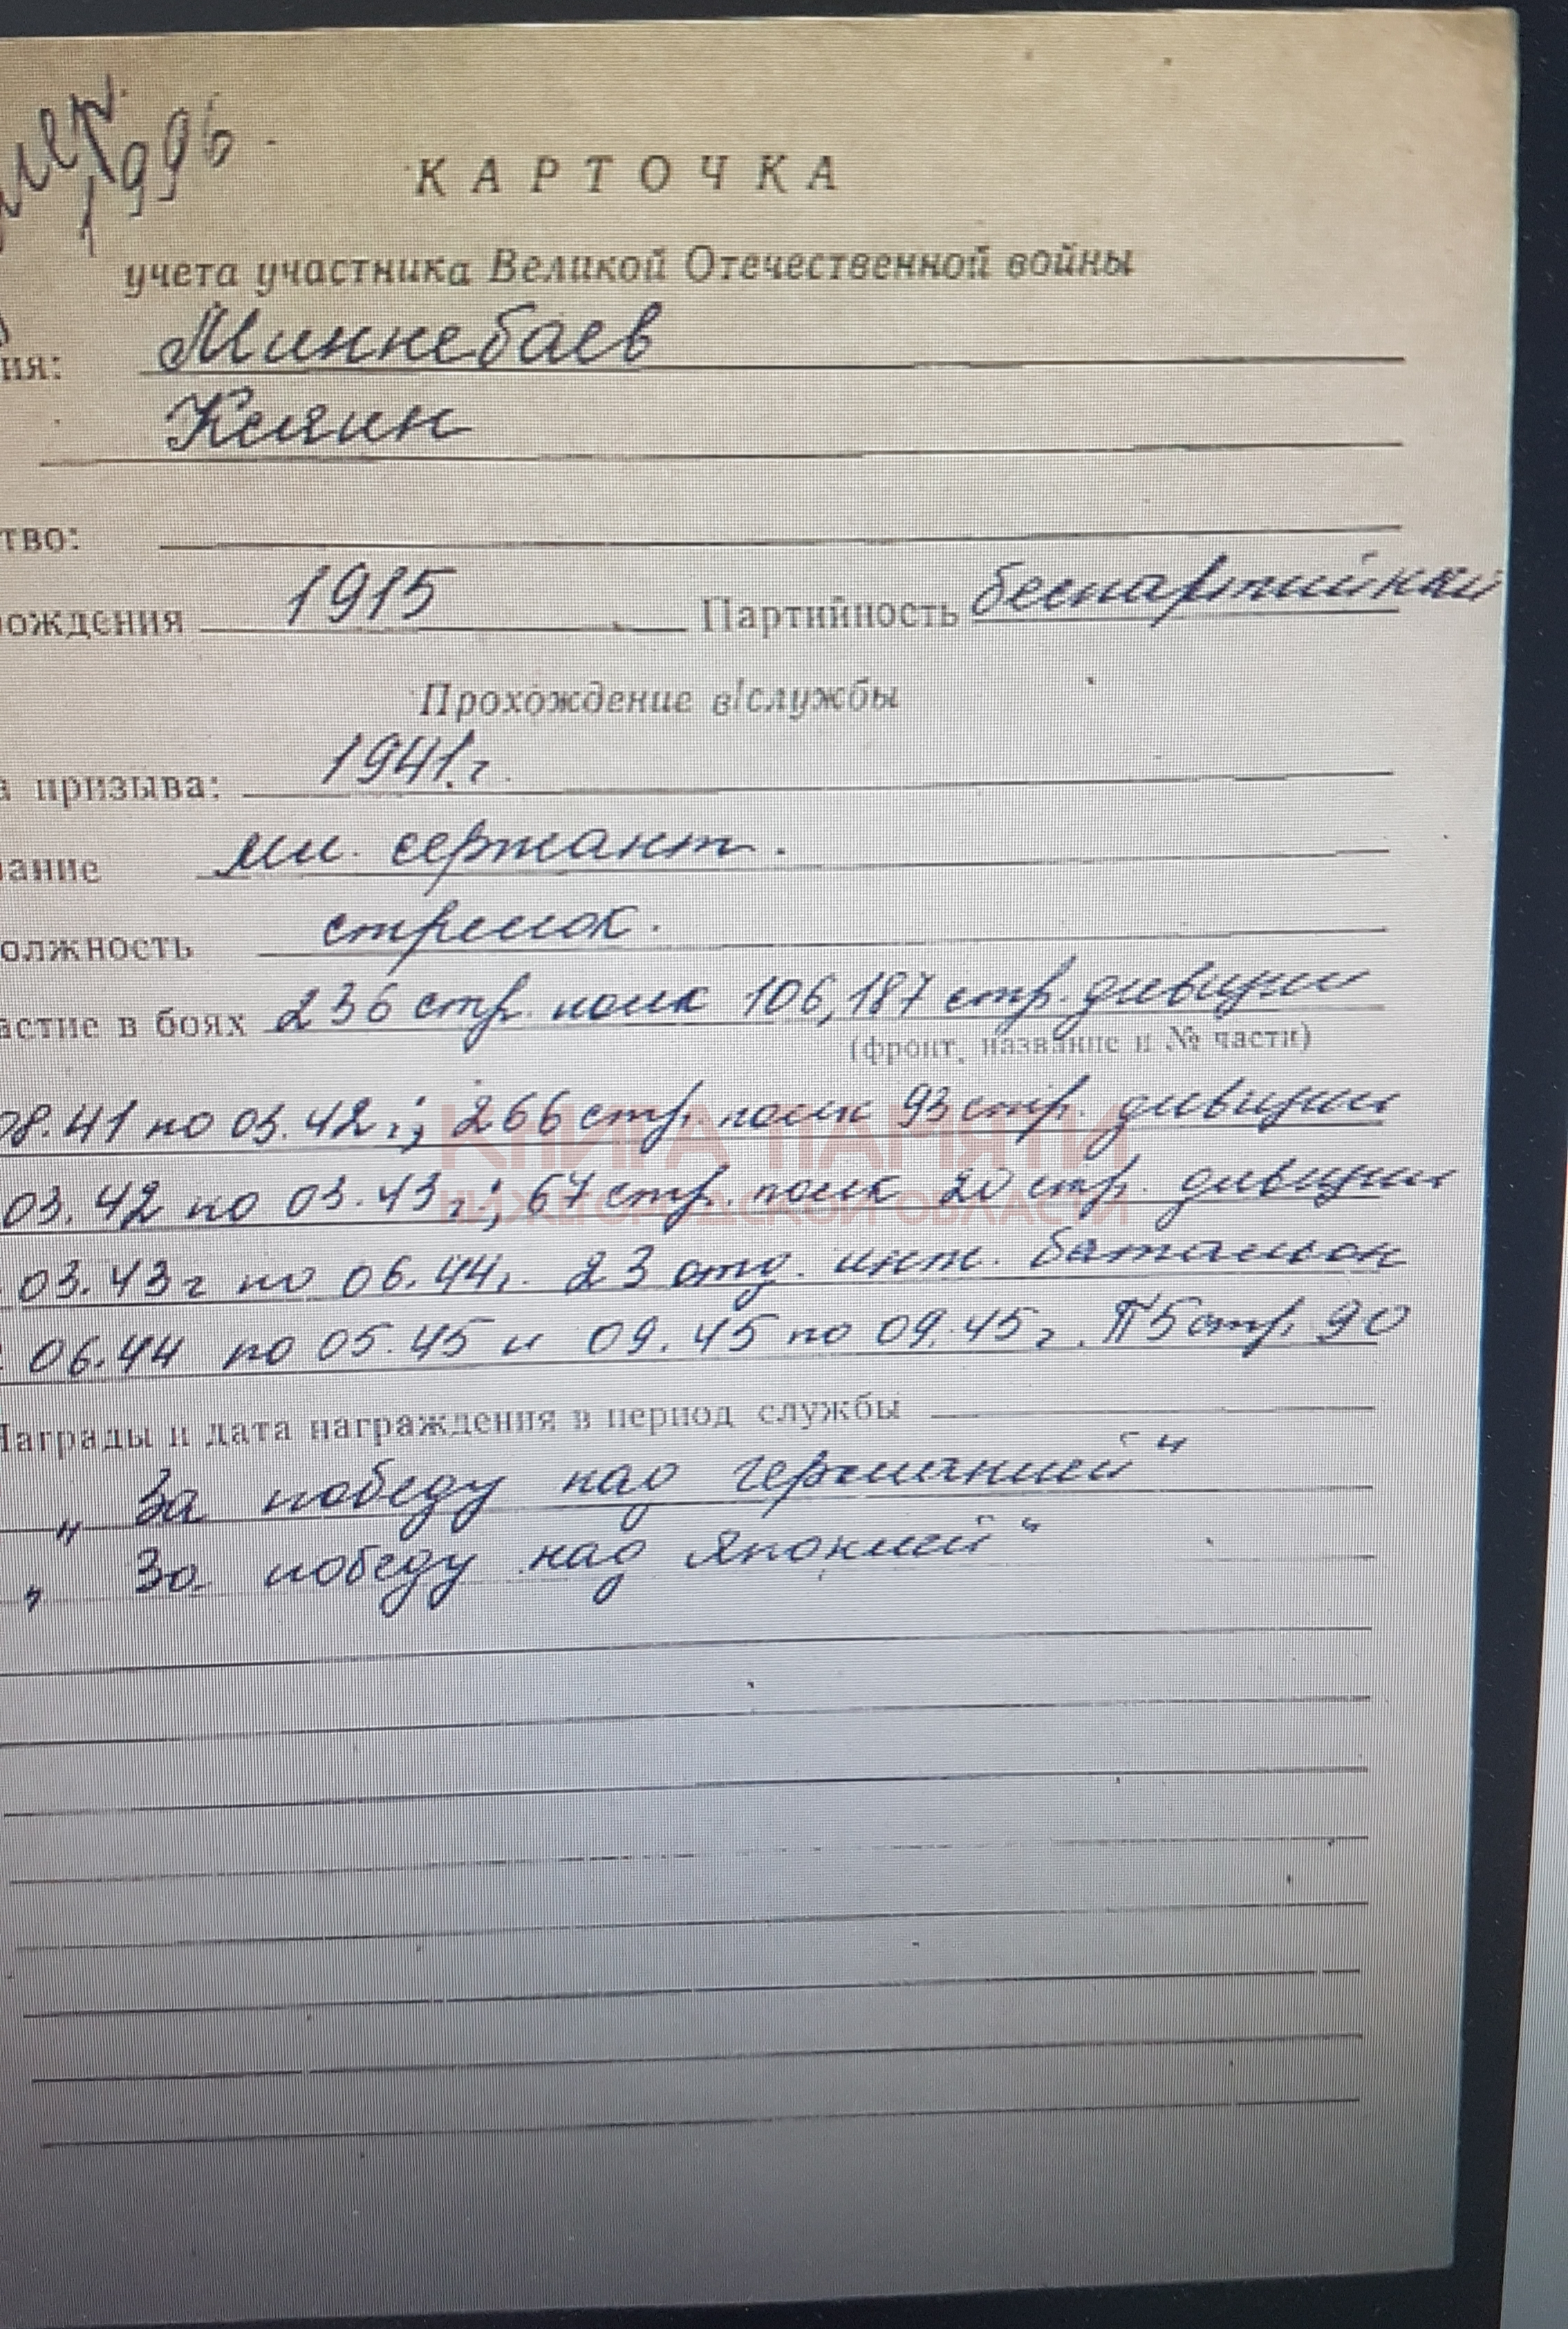 1996.
КАРТОЧКА
учета участника Великой Отечественной войны
ия: Миннебаев
Келин
тво:
ождения 1915 Партийность беспартийный
Прохождение в/службы
а призыва: 1941 г.
вание мл. сержант.
олжность стрелок.
астие в боях 236 стр. полк 106, 187 стр. дивизии
(фронт, название и № части)
08.41 по 03.42 г.; 266 стр. полк 93 стр. дивизии
КНИГА ПАМЯТИ
03.42 по 03.43 г.; 67 стр. полк 20 стр. дивизии
НИЖЕГОРОДСКОЙ ОБЛАСТИ
03.43 г по 06.44 г. 23 отд. инж. батальон
06.44 по 05.45 и 09.45 по 09.45 г. П5 стр. 90
Награды и дата награждения в период службы
„За победу над германией“
„За победу над Японией“